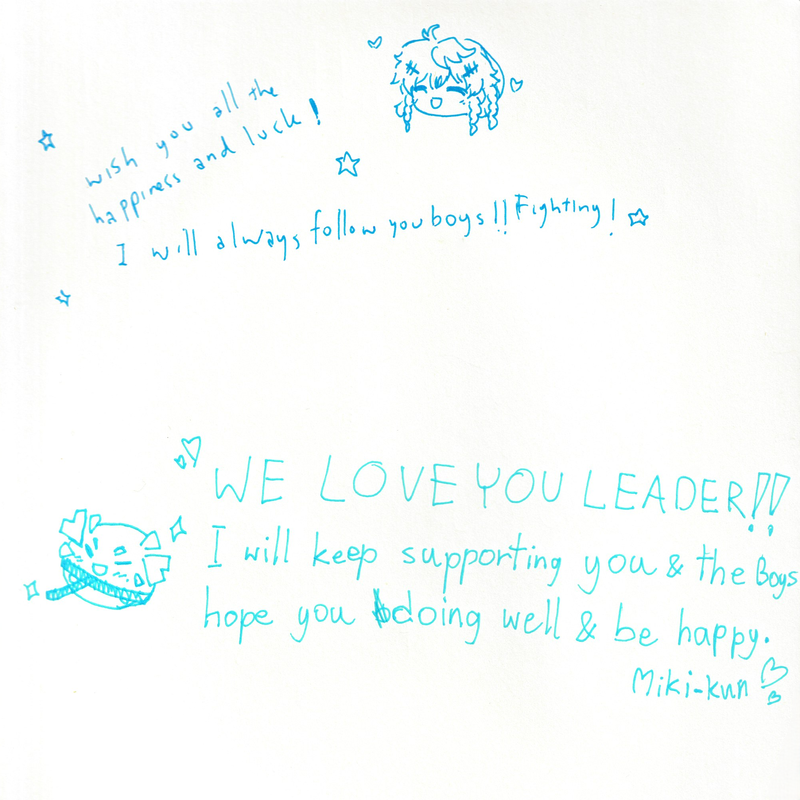 wish you all the
happiness and luck!
I will always follow you boys!! Fighting!
WE LOVE YOU LEADER!!
I will keep supporting you & the Boys
hope you doing well & be happy.
Miki-kun